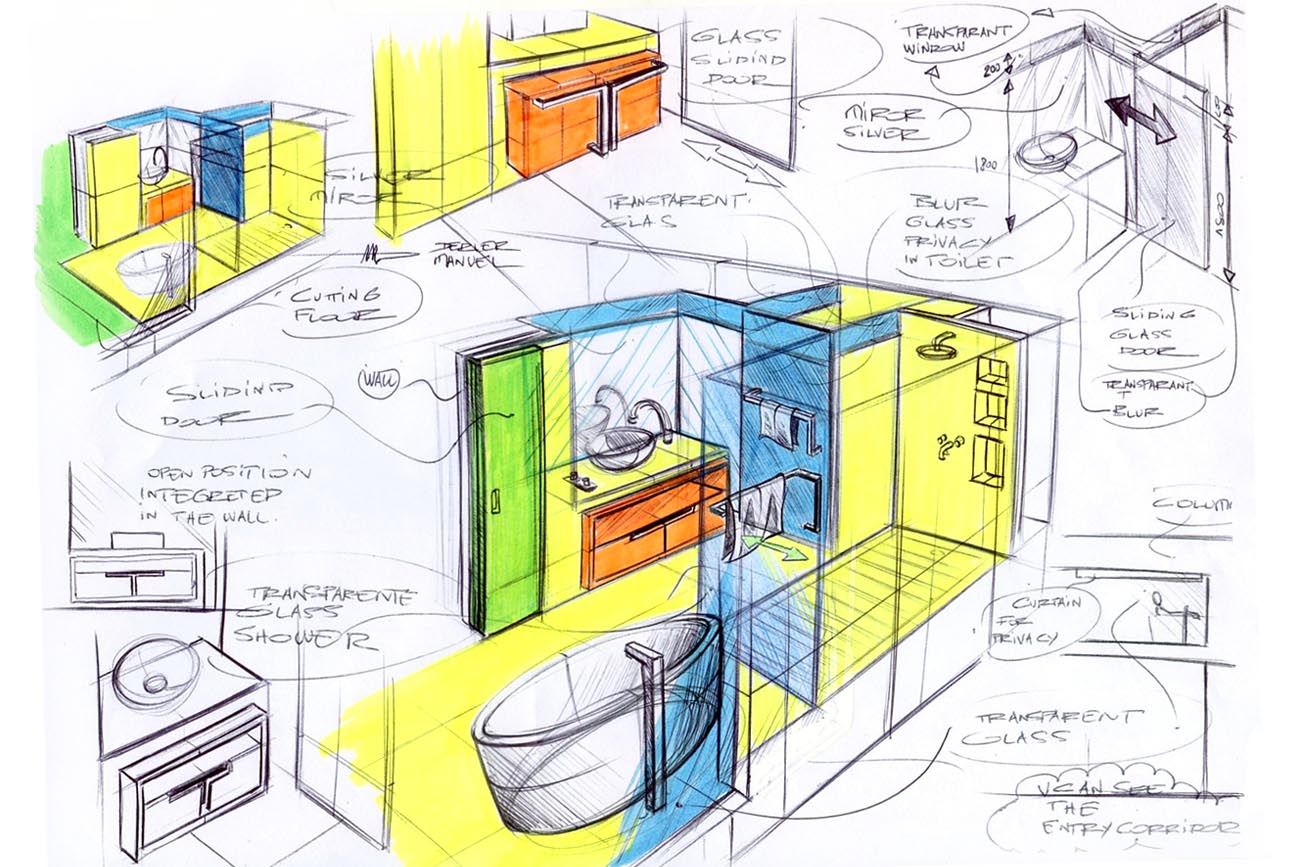 GLASS
SLIDIND
DOOR
TRANSPARANT
WINDOW
200
MIROR
SILVER
1800
SILVER
MIROR
TRANSPARENT
GLAS
BLUR
GLASS
PRIVACY
IN TOILET
MANUEL
CUTTING
FLOOR
SLIDING
GLASS
DOOR
TRANSPARANT
+
BLUR
WALL
SLIDIND
DOOR
OPEN POSITION
INTEGRETED
IN THE WALL.
COLUM
TRANSPARENTE
GLASS
SHOWER
CURTAIN
FOR
PRIVACY
TRANSPARENT
GLASS
V CAN SEE
THE
ENTRY CORRIDOR